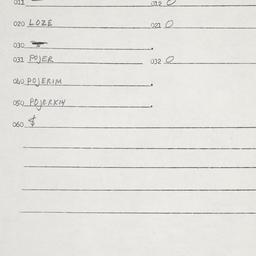 011 012 0
020 LOZE 021 0
030
031 POJER 032 0
040 POJERIM
050 POJERKIY
060 $